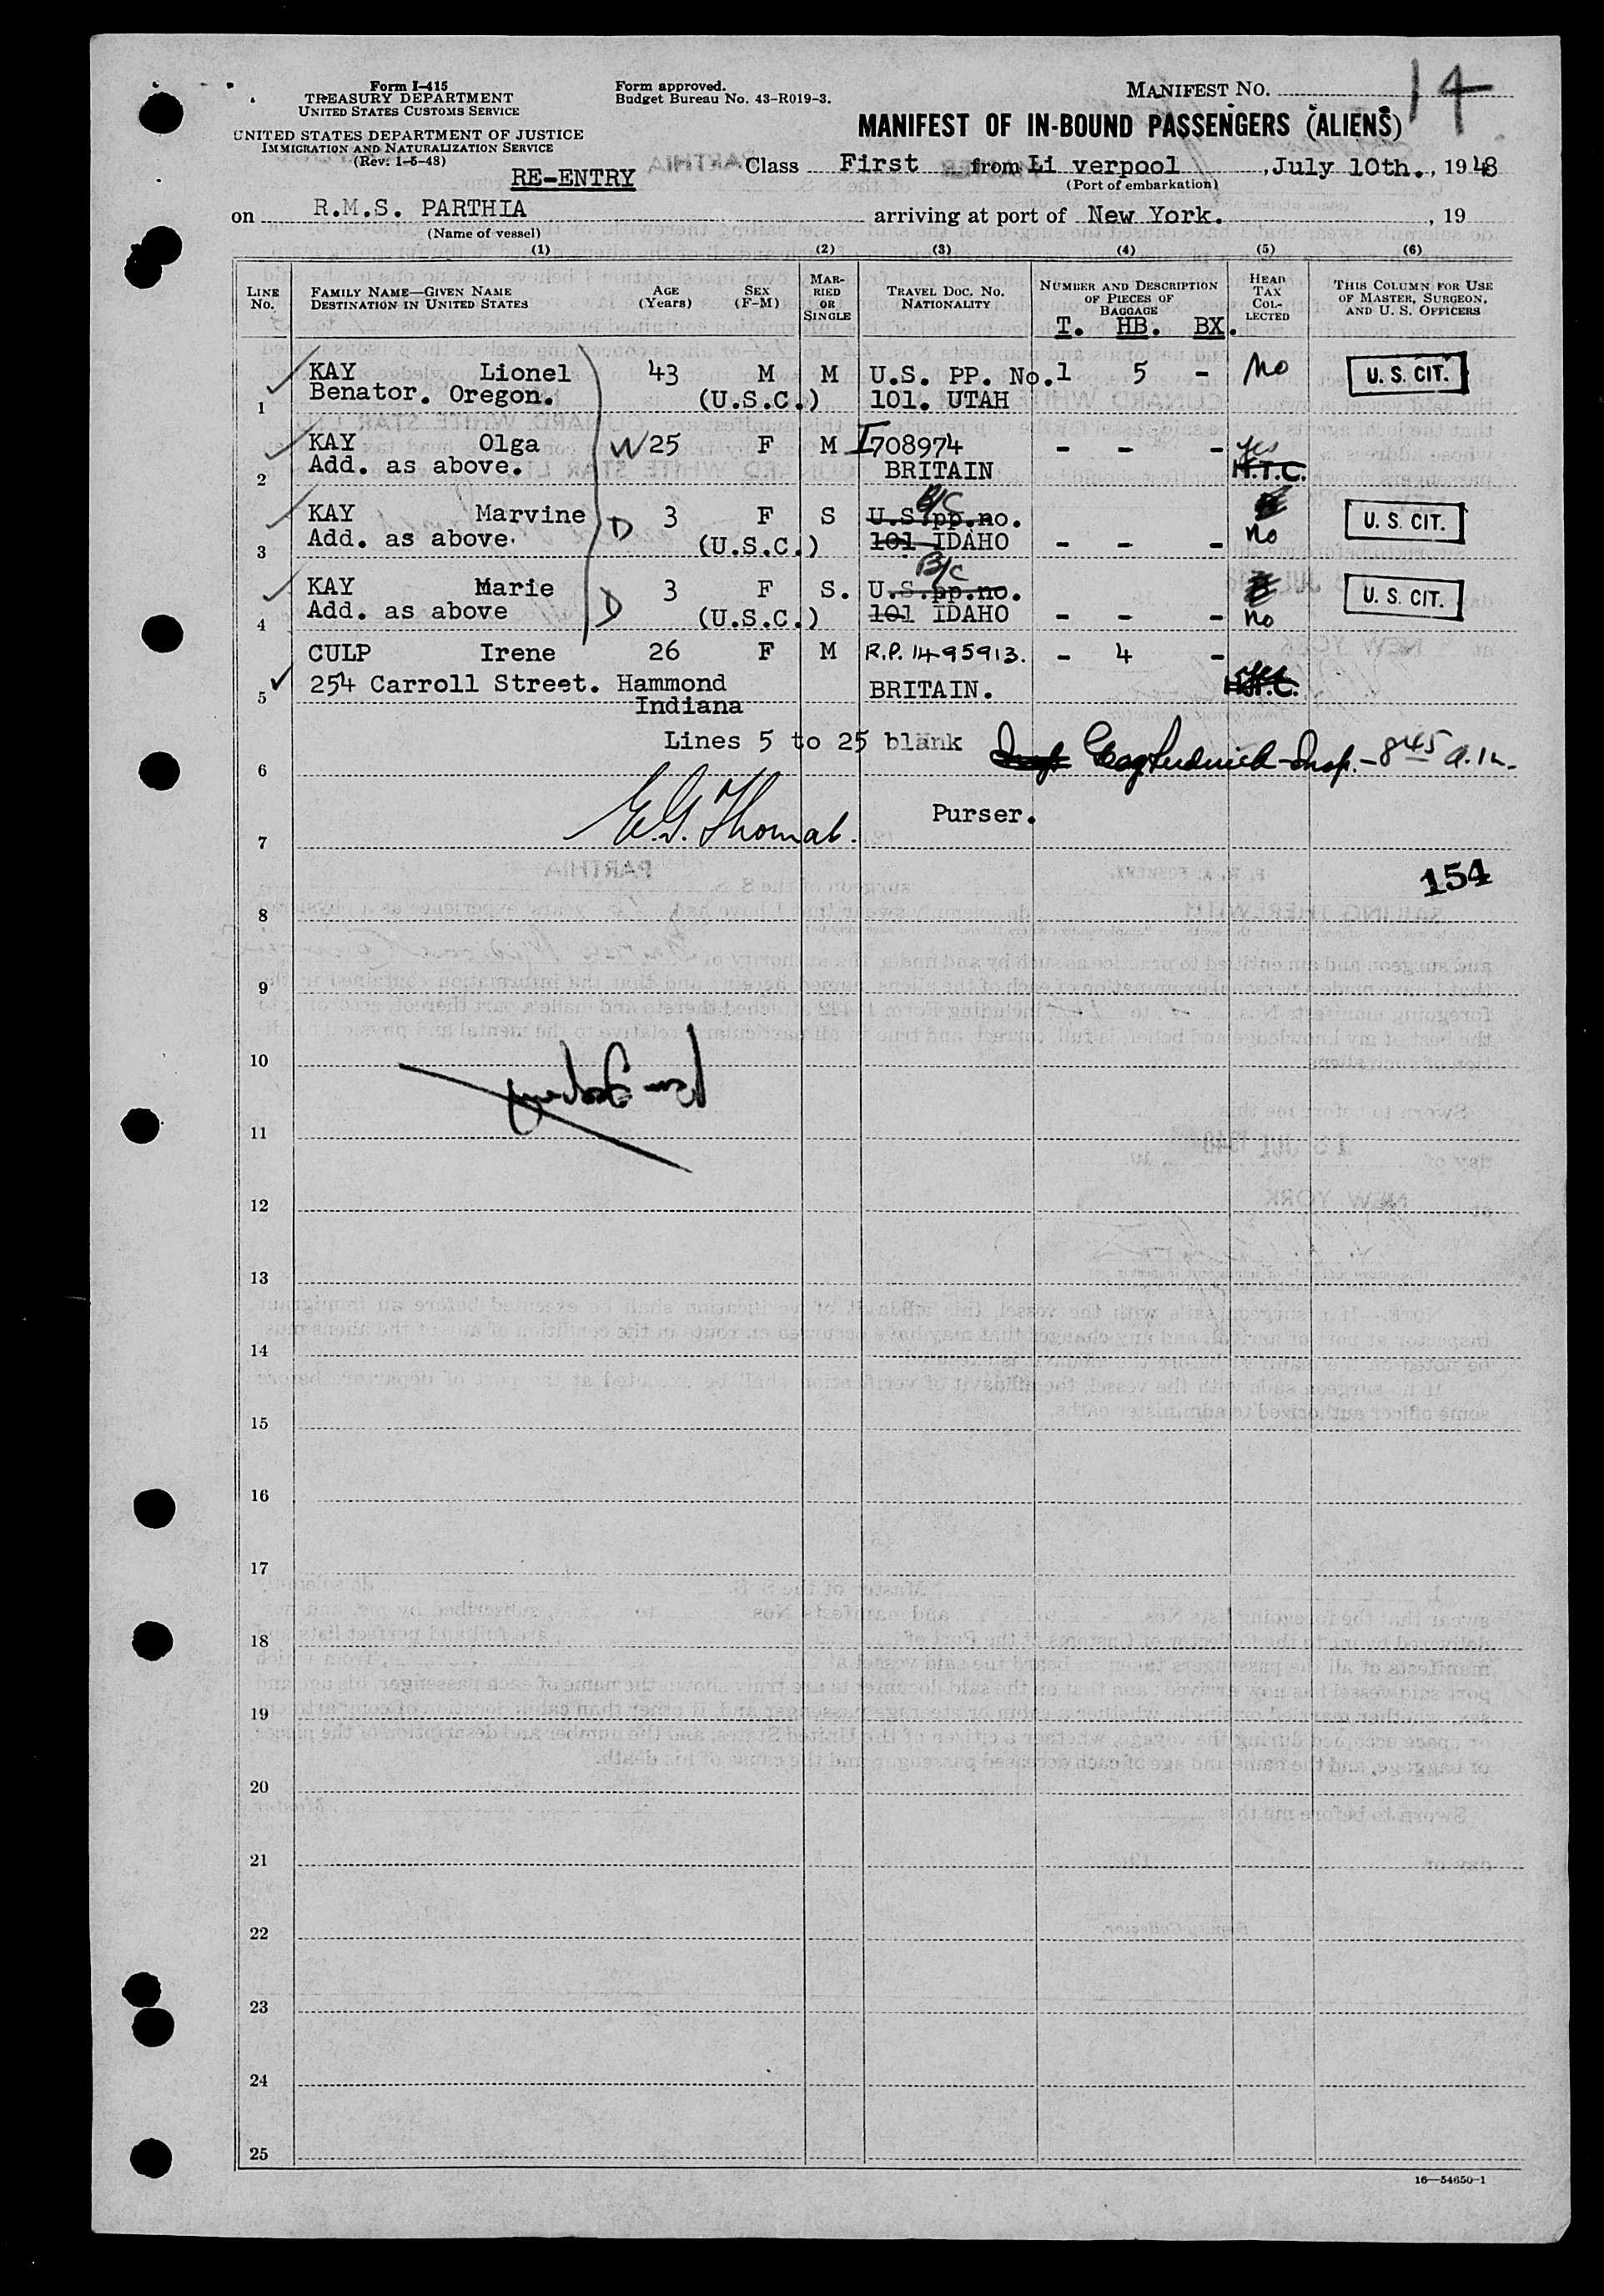 Form I-415
TREASURY DEPARTMENT
UNITED STATES CUSTOMS SERVICE
UNITED STATES DEPARTMENT OF JUSTICE
IMMIGRATION AND NATURALIZATION SERVICE
(Rev. 1-5-48)
RE-ENTRY
Form approved.
Budget Bureau No. 43-R019-3.
MANIFEST NO. 14
MANIFEST OF IN-BOUND PASSENGERS (ALIENS)
Class First from Li verpool, July 10th., 1948
(Port of embarkation)
on R.M.S. PARTHIA arriving at port of New York., 19
(Name of vessel)
(1) (2) (3) (4) (5) (6)
LINE No. FAMILY NAME—GIVEN NAME DESTINATION IN UNITED STATES AGE (Years) SEX (F-M) MARRIED OR SINGLE TRAVEL DOC. NO. NATIONALITY NUMBER AND DESCRIPTION OF PIECES OF BAGGAGE HEAD TAX COLLECTED THIS COLUMN FOR USE OF MASTER, SURGEON, AND U. S. OFFICERS
T. HB. BX.
KAY Lionel 43 M M U.S. PP. No. 1 5 - No U. S. CIT.
1 Benator. Oregon. (U.S.C.) 101. UTAH
KAY Olga W 25 F M I708974 - - - yes
2 Add. as above. BRITAIN H.T.C.
KAY Marvine D 3 F S U.S.pp.no. B/C U. S. CIT.
3 Add. as above. (U.S.C.) 101 IDAHO - - - no
KAY Marie D 3 F S. U.S.pp.no. B/C U. S. CIT.
4 Add. as above (U.S.C.) 101 IDAHO - - - no
CULP Irene 26 F M R.P. 1495913. - 4 -
5 254 Carroll Street. Hammond BRITAIN. H.T.C.
Indiana
Lines 5 to 25 blank
Insp. - 8 45 a.m.
6
E.G. Thomas. Purser.
7
154
8
9
10
11
12
13
14
15
16
17
18
19
20
21
22
23
24
25
16—54650-1